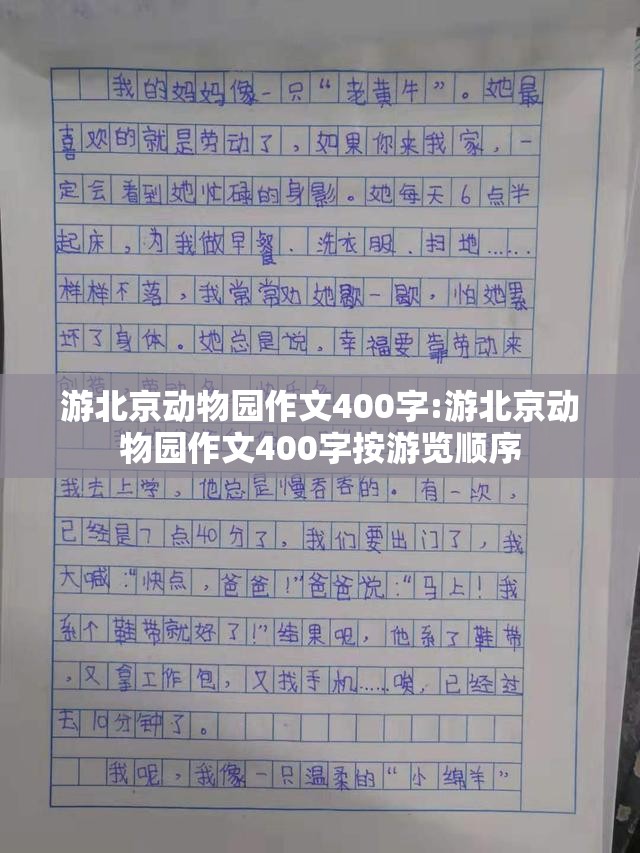 我的妈妈像一只“老黄牛”。她最
喜欢的就是劳动了，如果你来我家，一
定会看到她忙碌的身影。她每天6点半
起床，为我做早餐、洗衣服、扫地……
样样不落，我常常劝她歇一歇，怕她累
坏了身体。她总是说，幸福要靠劳动来
游北京动物园作文400字:游北京动
物园作文400字按游览顺序
我去上学，他总是慢吞吞的。有一次，
已经是7点40分了，我们要出门了，我
大喊：“快点，爸爸！”爸爸说：“马上！我
系个鞋带就好了！”结果呢，他系了鞋带
，又拿工作包，又找手机……唉，已经过
去10分钟了。
我呢，我像一只温柔的“小绵羊”